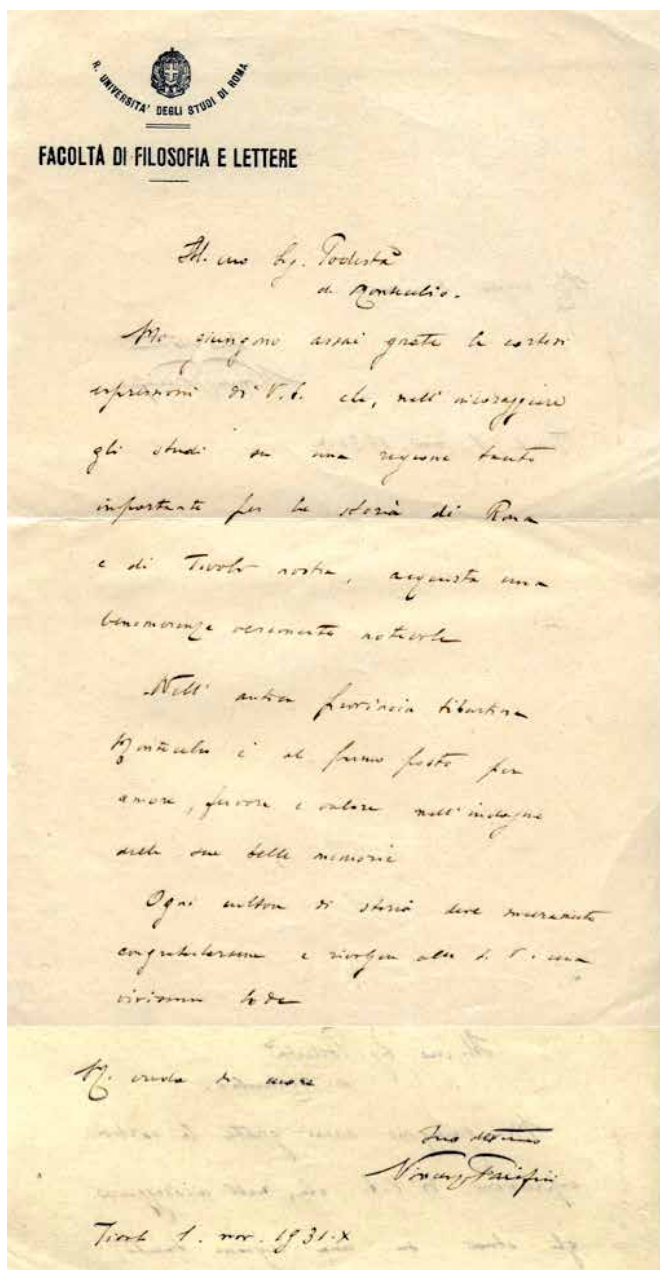 R. UNIVERSITA' DEGLI STUDI DI ROMA
FACOLTÀ DI FILOSOFIA E LETTERE
Ill.mo Sig. Podestà
di Monticelio.
Mi giungono assai grate le cortesi
espressioni di V. S. che, nell' incoraggiare
gli studi su una regione tanto
importante per la storia di Roma
e di Tivoli nostra, acquista una
benemerenza veramente notevole
Nell' antica provincia tiburtina
Monticelio è al primo posto per
amore, fervore e valore nell' indagine
delle sue belle memorie
Ogni cultore di storia deve sinceramente
congratularsene e rivolgere alla S. V. una
vivissima lode
Mi creda di cuore
Suo dev.mo
Vincenzo Pacifici
Tivoli 1. nov. 1931. X